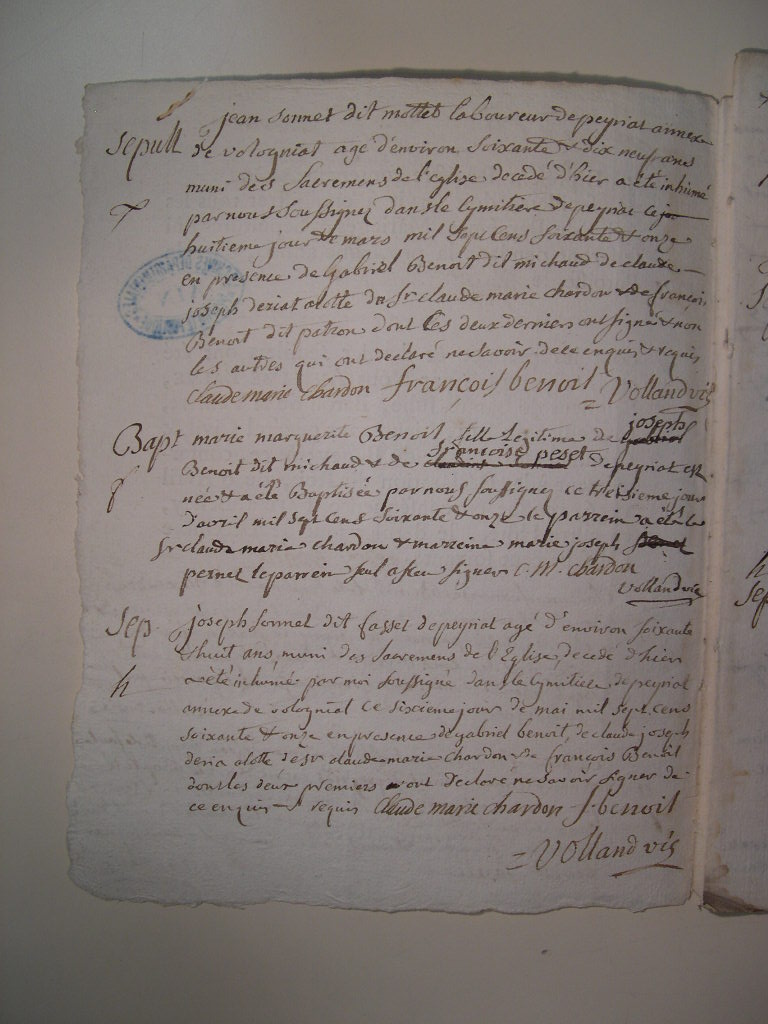 jean Sonnet dit mottet laboureur de peyriat annexe
Sepult de vologniat agé d'environ soixante & dix neuf ans
muni des Sacremens de l'eglise decedé d'hier a été inhumé
par nous Soussignez dans le cymitiere de peyriat ce
huitieme jour de mars mil sept cens soixante & onze
en presence de Gabriel Benoit dit michaud de claude
joseph deriat alotte du Sr claude marie chardon & de françois
Benoit dit patron dont les deux derniers ont signé & non
les autres qui ont declaré ne savoir de ce enquis & requis
Claude marie chardon françois benoit = Volland vic
Bapt marie marguerite Benoit fille legitime de joseph
Benoit dit michaud & de françoise peset de peyriat est
née & a été Baptisée par nous soussignez ce treisieme jour
d'avril mil sept cens soixante & onze le parrein a été le
sr claude marie chardon & marreine marie joseph
pernet le parrein seul a sceu signer C. M. chardon
Volland vic
Sep. joseph Sonnet dit fasset de peyriat agé d'environ soixante
& huit ans, muni des sacremens de l'Eglise decedé d'hier
a été inhumé par moi soussigné dans le cymitiere de peyriat
annexe de volognial ce sixieme jour de mai mil sept cens
soixante & onze en presence de gabriel benoit, de claude joseph
deria alotte de sr claude marie chardon & de françois Benoit
dont les deux premiers ont declaré ne savoir signer de
ce enquis & requis Claude marie chardon f. benoit
= Volland vic